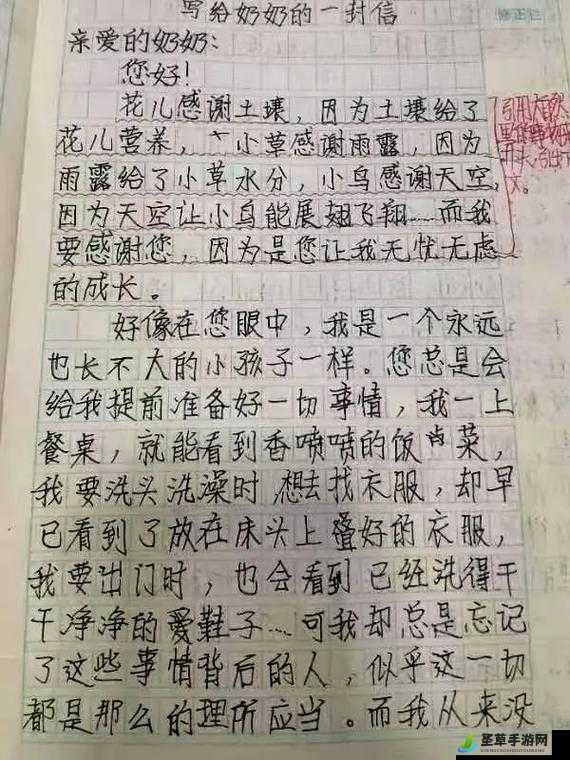 写给奶奶的一封信
修正栏
亲爱的奶奶：
您好！
花儿感谢土壤，因为土壤给了
花儿营养，小草感谢雨露，因为
雨露给了小草水分，小鸟感谢天空，
因为天空让小鸟能展翅飞翔……而我
要感谢您，因为是您让我无忧无虑
的成长。
引用大自然
开头，引出下
文。
好像在您眼中，我是一个永远
也长不大的小孩子一样。您总是会
给我提前准备好一切事情，我一上
餐桌，就能看到香喷喷的饭菜，
我要洗头洗澡时，想去找衣服，却早
已看到了放在床头上叠好的衣服，
我要出门时，也会看到已经洗得干
干净净的爱鞋子……可我却总是忘记
了这些事情背后的人，似乎这一切
都是那么的理所应当。而我从来没
圣草手游网